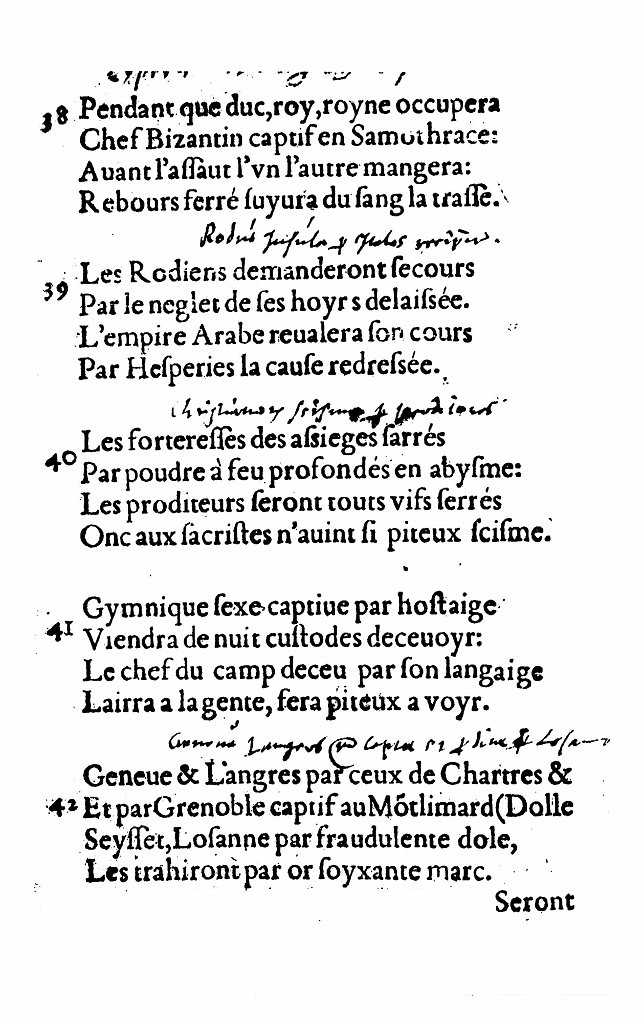 38 Pendant que duc,roy,royne occupera
Chef Bizantin captif en Samothrace:
Auant l'aſſaut l'vn l'autre mangera:
Rebours ferré ſuyura du ſang la traſſe.
39 Les Rodiens demanderont ſecours
Par le neglet de ſes hoyrs delaiſsée.
L'empire Arabe reualera ſon cours
Par Heſperies la cauſe redreſsée.
40 Les fortereſſes des aſsieges ſarrés
Par poudre à feu profondés en abyſme:
Les proditeurs ſeront touts vifs ſerrés
Onc aux ſacriſtes n'auint ſi piteux ſciſme.
41 Gymnique ſexe captiue par hoſtaige
Viendra de nuit cuſtodes deceuoyr:
Le chef du camp deceu par ſon langaige
Lairra a la gente, fera piteux a voyr.
Geneue & Langres par ceux de Chartres &
42 Et par Grenoble captif au Mõtlimard (Dolle
Seyſſet, Loſanne par fraudulente dole,
Les trahiront par or ſoyxante marc.
Seront